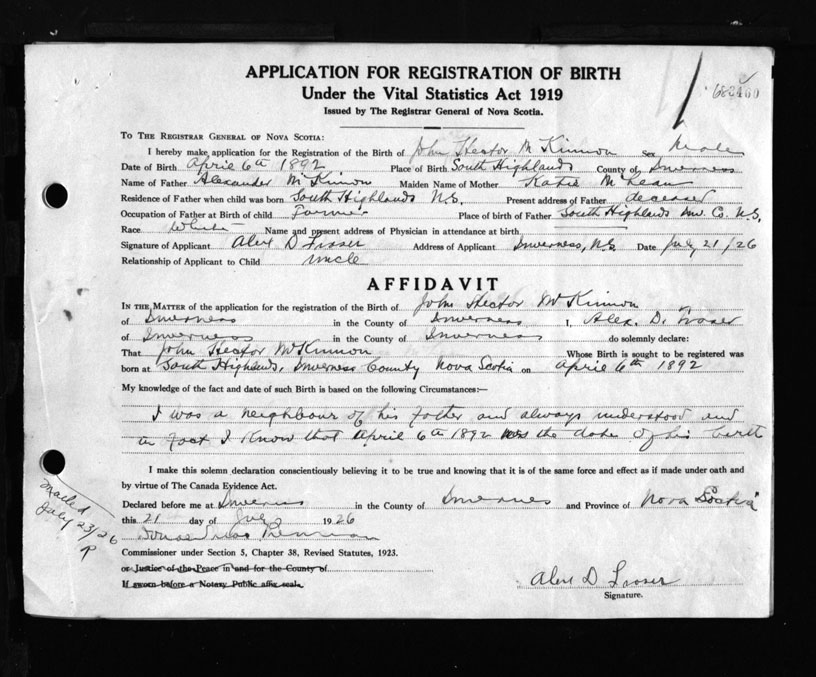 APPLICATION FOR REGISTRATION OF BIRTH
Under the Vital Statistics Act 1919
Issued by The Registrar General of Nova Scotia.
TO THE REGISTRAR GENERAL OF NOVA SCOTIA:
I hereby make application for the Registration of the Birth of John Hector McKinnon sex Male
Date of Birth April 6th 1892 Place of Birth South Highlands County of Inverness
Name of Father Alexander McKinnon Maiden Name of Mother Katie McLean
Residence of Father when child was born South Highlands N.S. Present address of Father deceased
Occupation of Father at Birth of child Farmer Place of birth of Father South Highlands Inv. Co. N.S.
Race White Name and present address of Physician in attendance at birth
Signature of Applicant Alex D Fraser Address of Applicant Inverness, N.S. Date July 21/26
Relationship of Applicant to Child uncle
AFFIDAVIT
IN THE MATTER of the application for the registration of the Birth of John Hector McKinnon
of Inverness in the County of Inverness I, Alex. D. Fraser
of Inverness in the County of Inverness do solemnly declare:
That John Hector McKinnon Whose Birth is sought to be registered was
born at South Highlands, Inverness County Nova Scotia on April 6th 1892
My knowledge of the fact and date of such Birth is based on the following Circumstances:—
I was a neighbour of his father and always understood and
in fact I know that April 6th 1892 was the date of his birth
I make this solemn declaration conscientiously believing it to be true and knowing that it is of the same force and effect as if made under oath and
by virtue of The Canada Evidence Act.
Declared before me at Inverness in the County of Inverness and Province of Nova Scotia
this 21 day of July 1926
Commissioner under Section 5, Chapter 38, Revised Statutes, 1923.
or Justice of the Peace in and for the County of
If sworn before a Notary Public affix seal.
Alex D Fraser
Signature.
Mailed
July 23/26
R